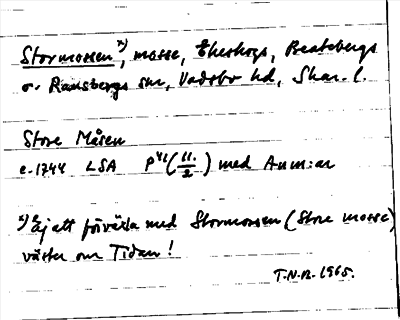 Stormossen x), mosse, Ekeskogs, Beatebergs
o. Ransbergs snr, Vadsbo hd, Skar. l.
Store Måsen
c. 1744 LSA P 46 (11/2) med Anm:ar
x) Ej att förväxla med Stormossen (Store mosse)
väster om Tidan!
T.N.R. 1965.